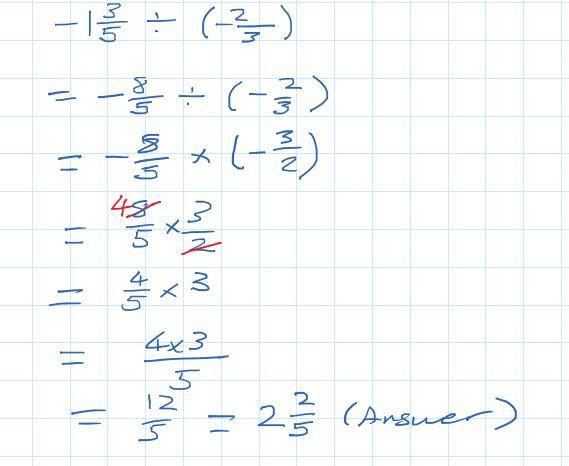 -1 3/5 ÷ (-2/3)
= -8/5 ÷ (-2/3)
= -8/5 × (-3/2)
= 4 8/5 × 3/2
= 4/5 × 3
= 4×3/5
= 12/5 = 2 2/5 (Answer)